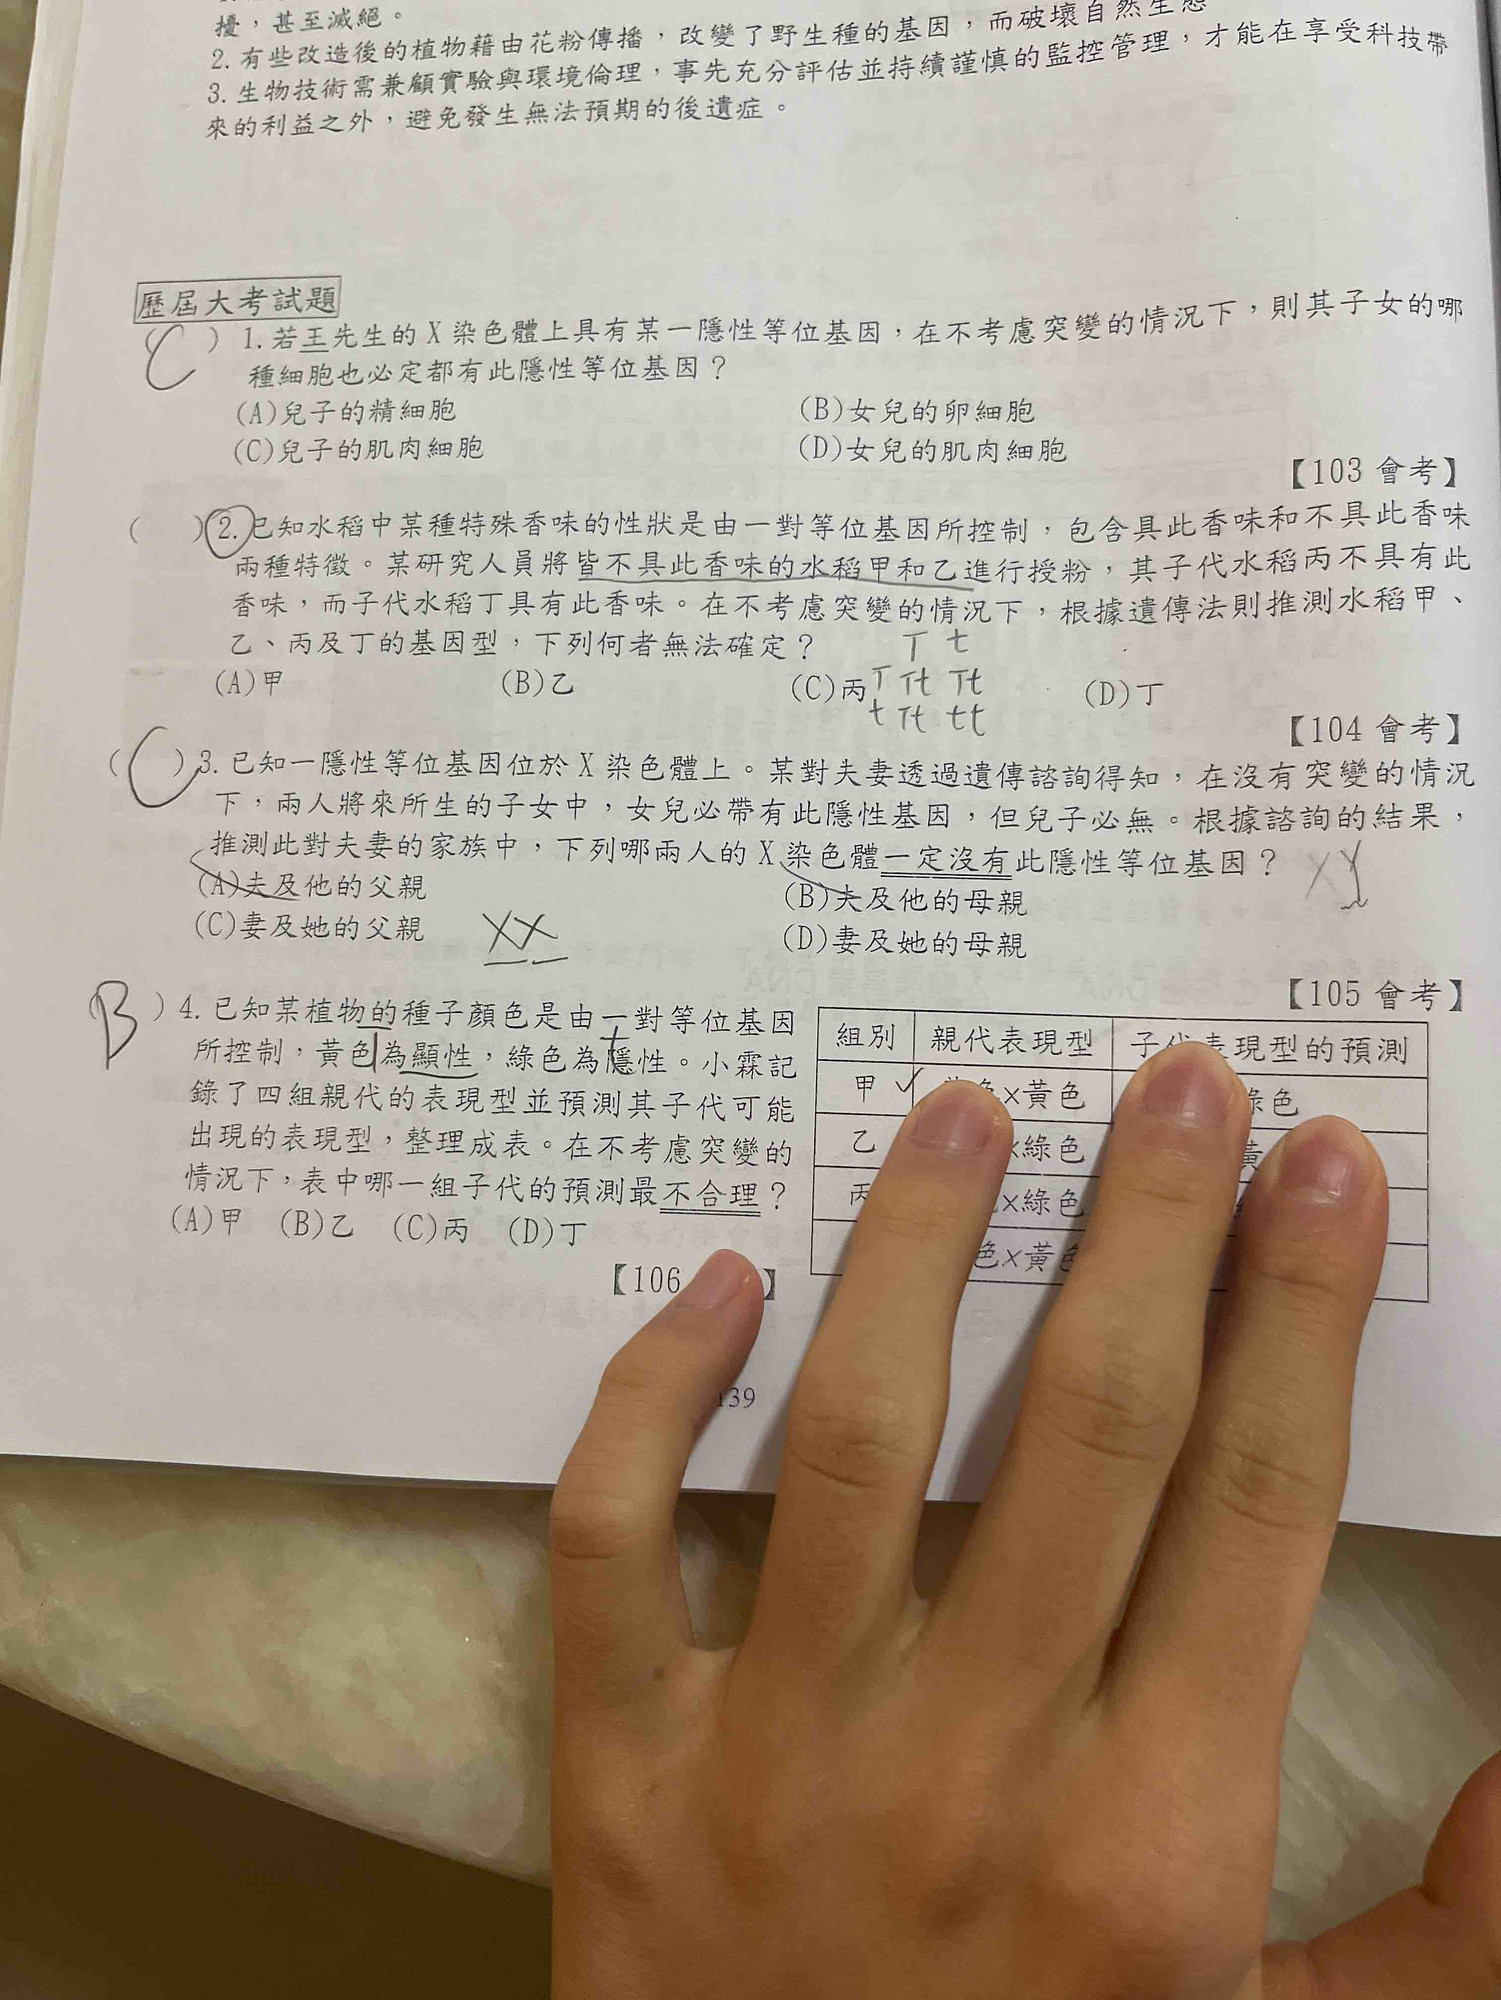 擾，甚至滅絕。
2. 有些改造後的植物藉由花粉傳播，改變了野生種的基因，而破壞自然生態
3. 生物技術需兼顧實驗與環境倫理，事先充分評估並持續謹慎的監控管理，才能在享受科技帶
來的利益之外，避免發生無法預期的後遺症。
歷屆大考試題
(C) 1. 若王先生的 X 染色體上具有某一隱性等位基因，在不考慮突變的情況下，則其子女的哪
種細胞也必定都有此隱性等位基因？
(A)兒子的精細胞 (B)女兒的卵細胞
(C)兒子的肌肉細胞 (D)女兒的肌肉細胞
【103 會考】
( ) 2. 已知水稻中某種特殊香味的性狀是由一對等位基因所控制，包含具此香味和不具此香味
兩種特徵。某研究人員將皆不具此香味的水稻甲和乙進行授粉，其子代水稻丙不具有此
香味，而子代水稻丁具有此香味。在不考慮突變的情況下，根據遺傳法則推測水稻甲、
乙、丙及丁的基因型，下列何者無法確定？ T t
(A)甲 (B)乙 (C)丙 T Tt Tt (D)丁
t Tt tt
【104 會考】
(C) 3. 已知一隱性等位基因位於 X 染色體上。某對夫妻透過遺傳諮詢得知，在沒有突變的情況
下，兩人將來所生的子女中，女兒必帶有此隱性基因，但兒子必無。根據諮詢的結果，
推測此對夫妻的家族中，下列哪兩人的 X 染色體一定沒有此隱性等位基因？ XY
(A)夫及他的父親 (B)夫及他的母親
(C)妻及她的父親 XX (D)妻及她的母親
【105 會考】
B ) 4. 已知某植物的種子顏色是由一對等位基因
所控制，黃色為顯性，綠色為隱性。小霖記
錄了四組親代的表現型並預測其子代可能
出現的表現型，整理成表。在不考慮突變的
情況下，表中哪一組子代的預測最不合理？
(A)甲 (B)乙 (C)丙 (D)丁
【106 】
組別 親代表現型 子代表現型的預測
甲 ✓ 色×黃色 綠色
乙 ×綠色 黃
丙 ×綠色
色×黃色
139